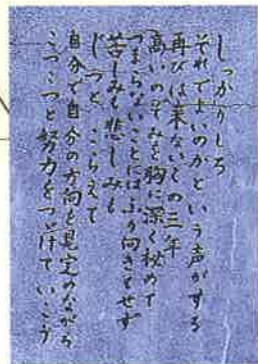 しっかりしろ
それでよいのかという声がする
再びは来ないこの三年
高いのぞみを胸に深く秘めて
つまらないことにはふり向きもせず
苦しみも悲しみも
じっと、こらえて
自分で自分の方向を見定めながら
こつこつと努力をつづけていこう